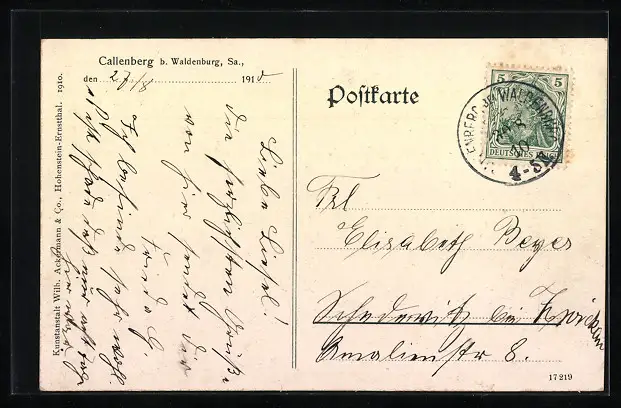 Callenberg b. Waldenburg, Sa.,
den 27/8 1910
Postkarte
5 5
DEUTSCHES REICH
WALDENBURG
4-5N
Liebe Liesel!
die herzlichsten Grüße
von hier sendet Dir
Frida G.
Ich befinde mich sehr wohl.
Frl
Elisabeth Beyer
Schedewitz bei Zwickau
Amalienstr 8.
Kunstanstalt Wilh. Ackermann & Co., Hohenstein-Ernstthal. 1910.
17219